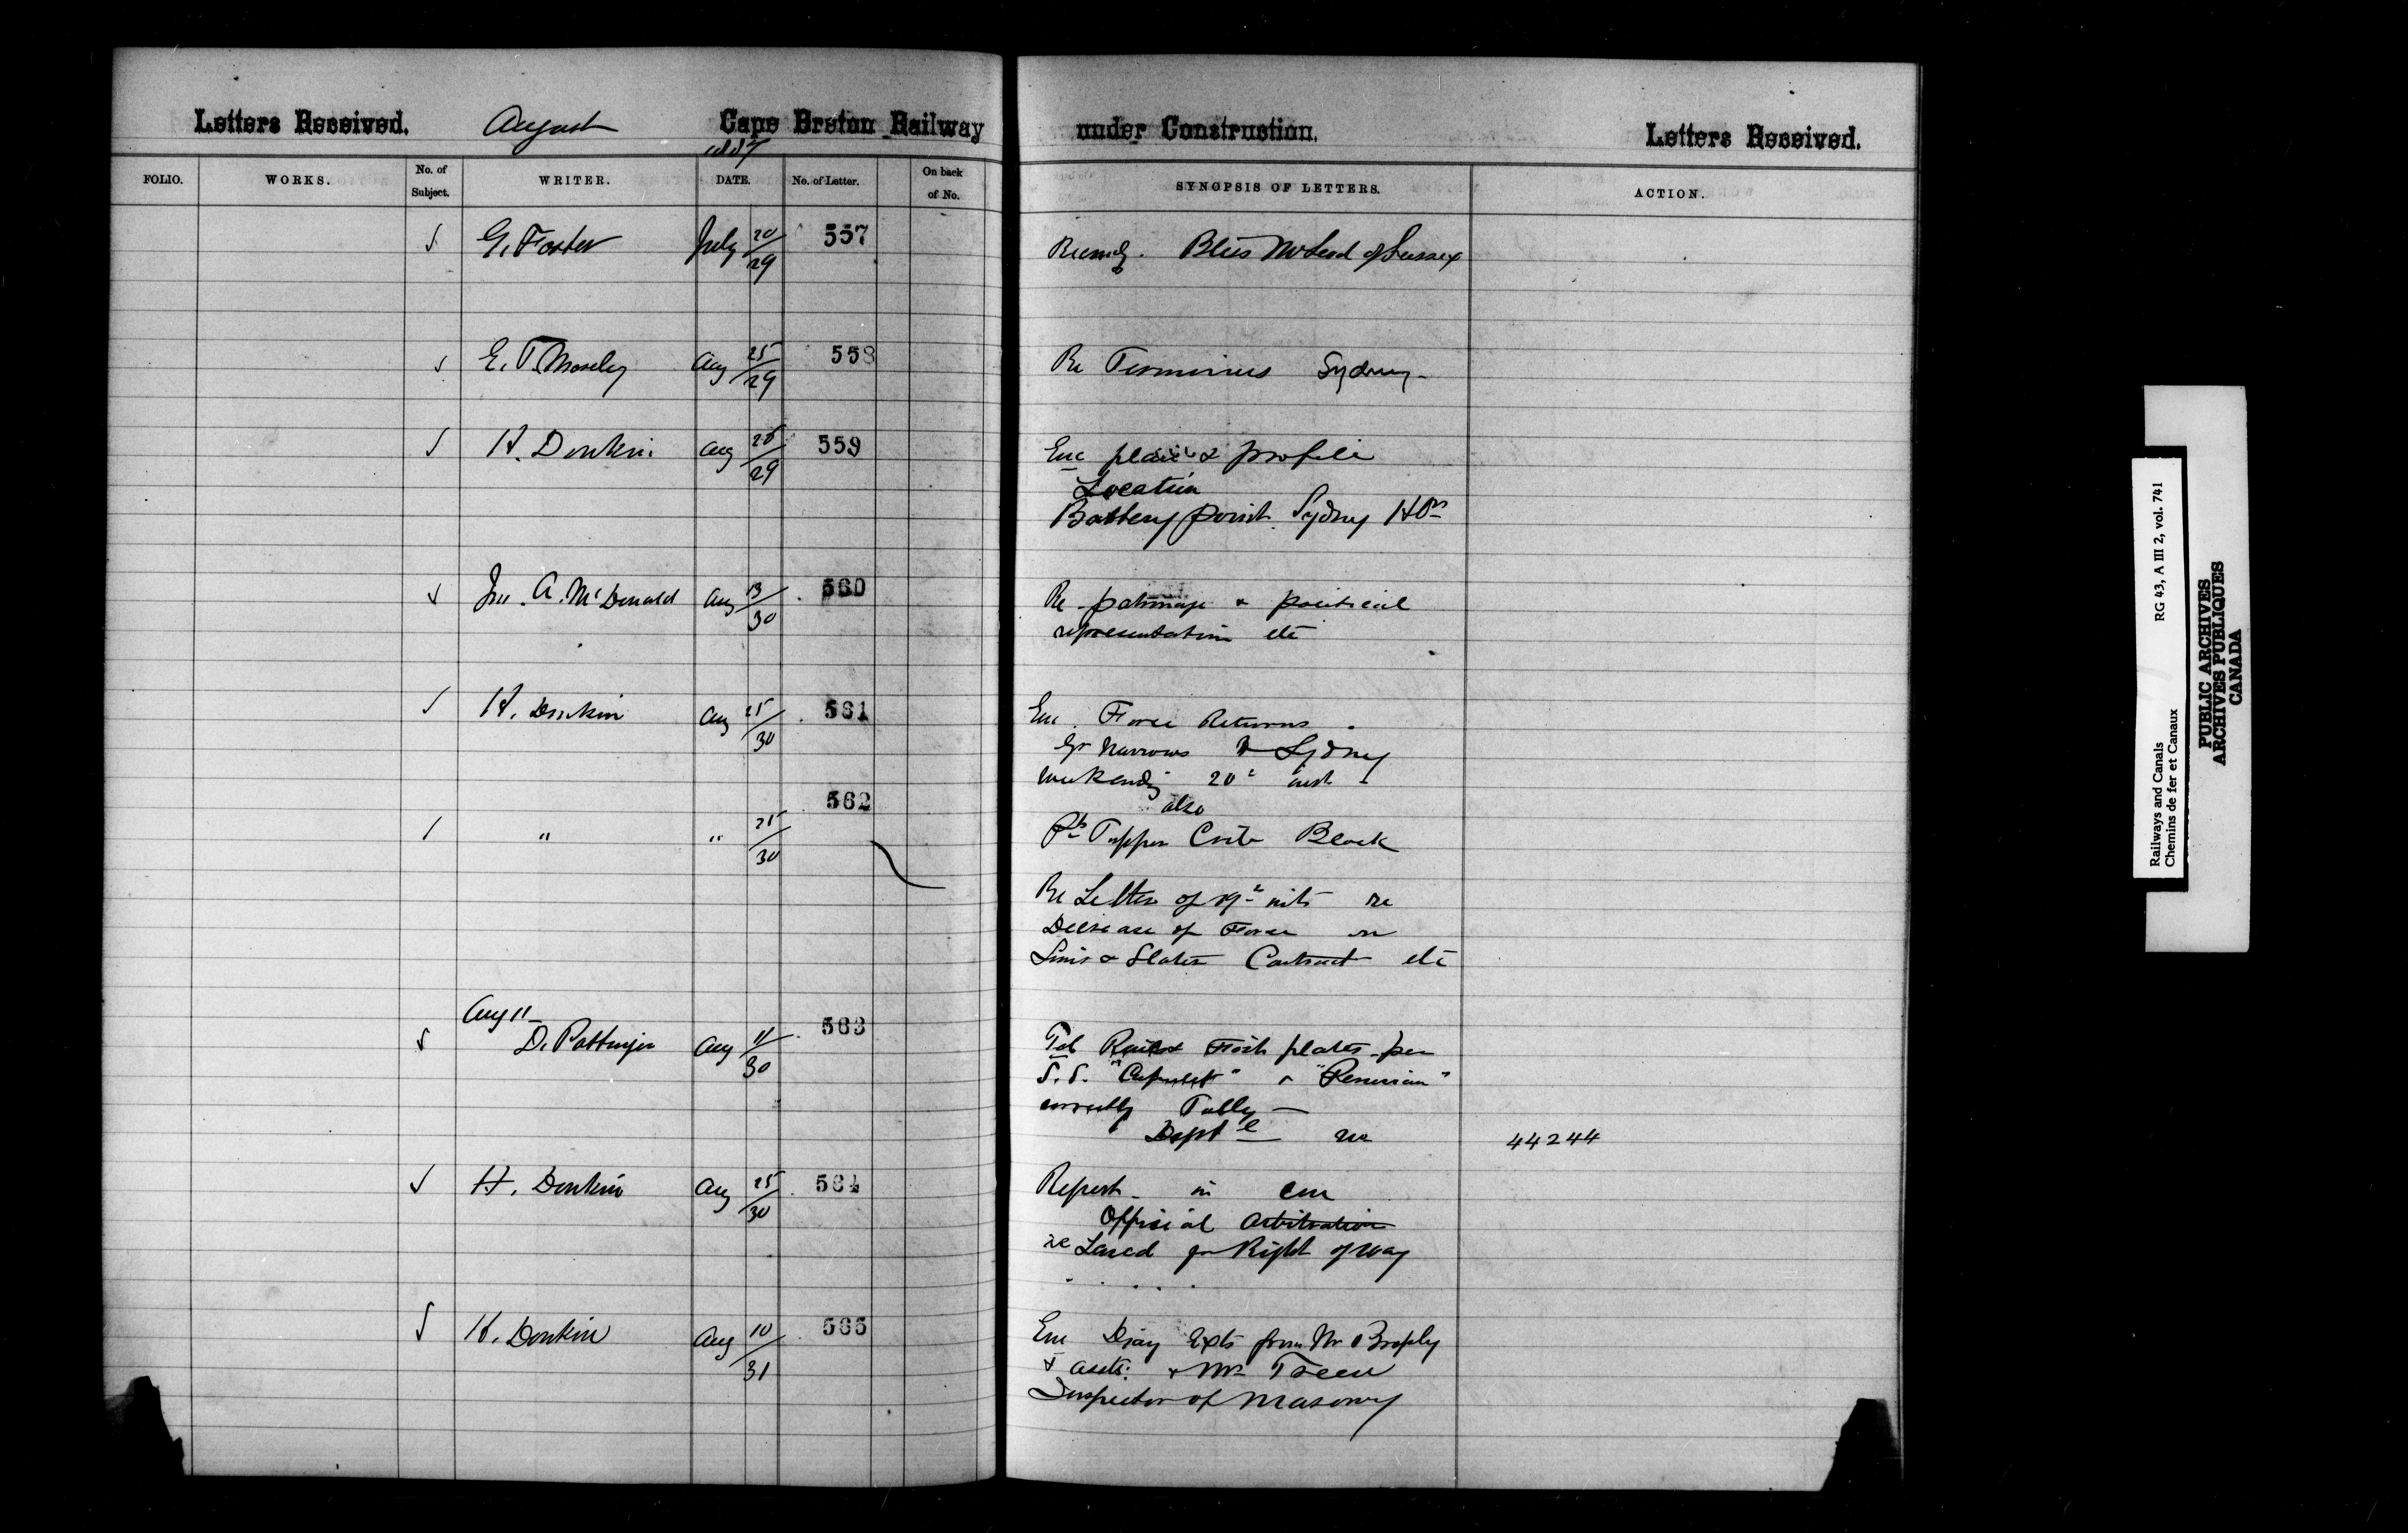 Letters Received. August Cape Breton Railway under Construction. Letters Received.
FOLIO. WORKS. No. of Subject. WRITER. DATE. No. of Letter. On back of No. SYNOPSIS OF LETTERS. ACTION.
G. Foster July 20/29 557 McLeod of Sussex
E. T. Mosely Aug 25/29 558 Re Terminus Sydney
H. Donkin Aug 25/29 559 Enc plan & profile
Location
Battery point Sydney
Jno. A. McDonald Aug 13/30 560 Re patronage & political
representation etc
H. Donkin Aug 25/30 561 Enc. Force Returns
Gr Narrows to Sydney
week ending 20th inst
also
Pt Tupper Crib Block
" " 25/30 562
Re Letter of 19th inst re
Decrease of Force on
Sims & Slater Contract etc
Aug 11
D. Pottinger Aug 11/30 563 Tel Rails & Fish plates per
S.S. " " & "Peruvian"
correctly Tally
Dept'l re 44244
H. Donkin Aug 25/30 564 Report in
Official Arbitration
re Land for Right of way
H. Donkin Aug 10/31 565 Enc Diary Exts from Mr Brophy
& assts. & Mr Treen
Inspector of Masonry
Railways and Canals RG 43, A III 2, vol. 741
Chemins de fer et Canaux
PUBLIC ARCHIVES
ARCHIVES PUBLIQUES
CANADA